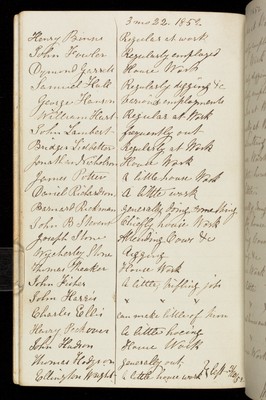 3 mo 22. 1852.
Henry Binns Regular at work
John Fowler Regularly employed
Dymond Garrett House Work
Samuel Hall Regularly digging &c
George Hanson various employments
William Hart Regular at Work
John Lambert frequently out
Bridger Lidbetter Regularly at Work
Jonathan Nicholson House Work
James Potter A little house Work
Daniel Richardson A little work
Barnard Rickman generally doing something
John B Stevens Chiefly house Work
Joseph Stone Attending Cows &c
Wycherley Stone digging
Thomas Thacker House Work
John Fisher A little trifling jobs
John Harris " " "
Charles Ellis can make little of him
Henry Peckover A little hoeing
John Hudson House Work
Thomas Hodgson generally out
Ellington Wright A little house work